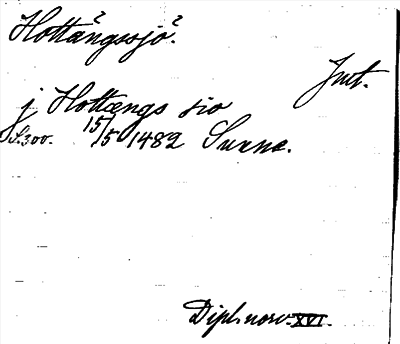 Hottångssjö².
Jmt.
j Hottængs sio
S. 300. 15/5 1482 Sunne.
Dipl. norv. XVI.